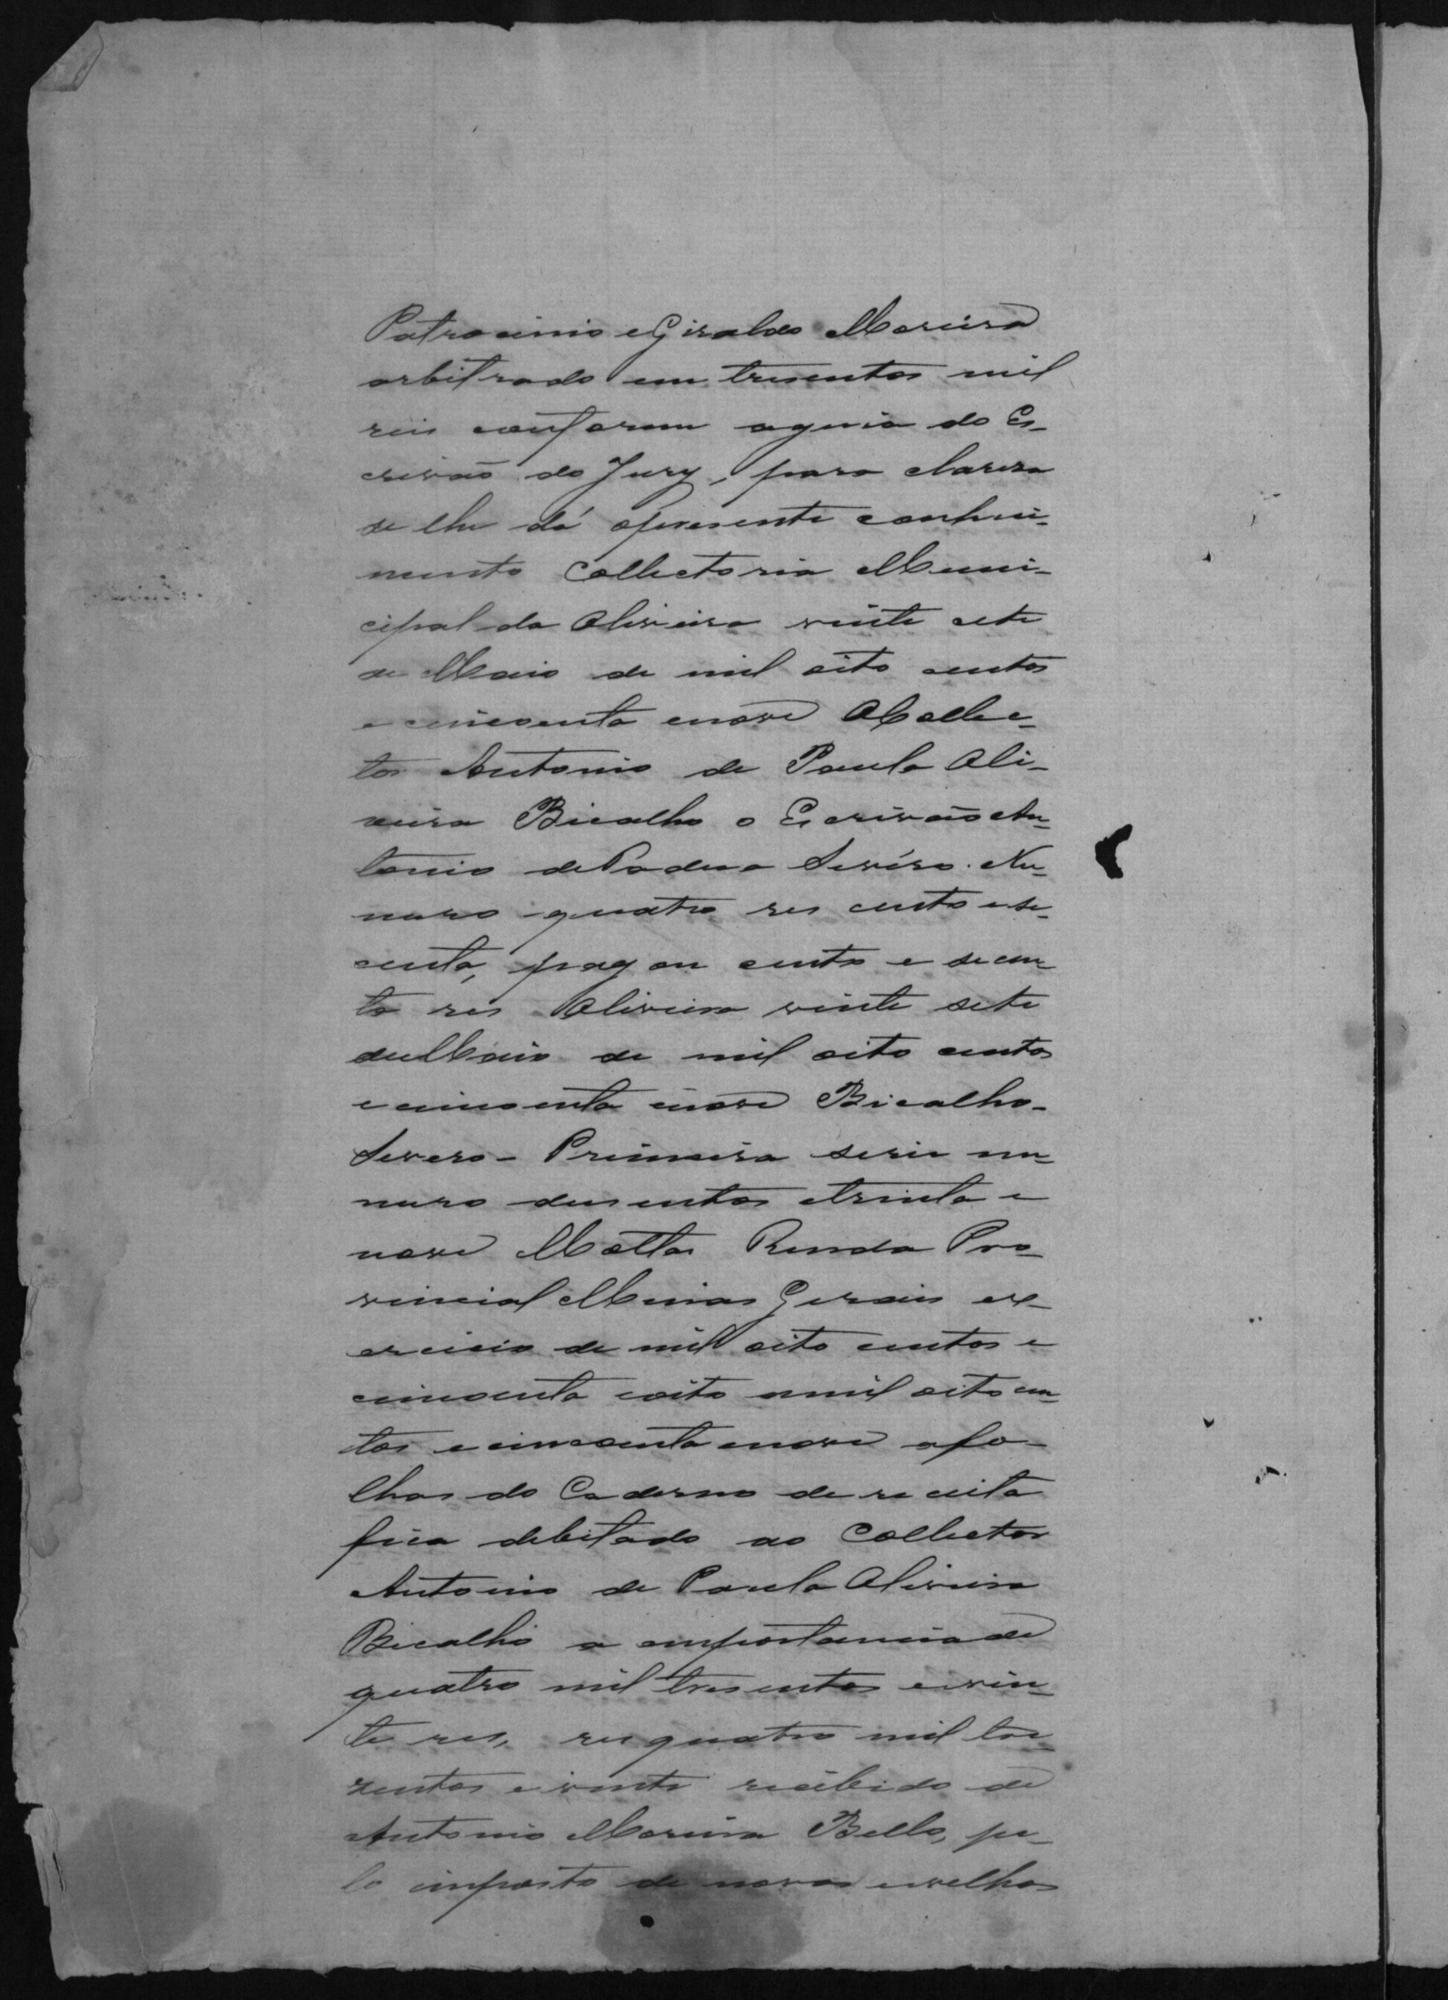 Patrocinio e Giraldo Moreira
arbitrado em tresentos mil
reis conforem aguia do Es-
crivaõ do Jury, para clareza
se lhe dá opresente conheci-
mento Collectoria Muni-
cipal da Oliveira vinte sete
de Maio de mil oito centos
e cincoenta enove O Collec-
tor Antonio de Paula Oli-
veira Bicalho o Escrivaõ An-
tonio de Padua Sevéro. Nu-
mero quatro reis cento e se-
centa, pagou cento e secen-
ta reis Oliveira vinte sete
de Maio de mil oito centos
e cincoenta enove Bicalho-
Severo - Primeira serie nu-
mero dusentos etrinta e
nove Mattos Renda Pro-
vincial Minas Gerais ex-
ercicio de mil oito centos e
cincoenta eoito amil oito cen-
tos e cincoenta enove afo-
lhas do Caderno de receita
fica debitado ao Collector
Antonio de Paula Oliveira
Bicalho a emportancia de
quatro mil tresentos e vin-
te reis, reis quatro mil tre-
zentos e vinte recebido de
Antonio Moreira Bello, pe-
lo imposto de novos evelhos